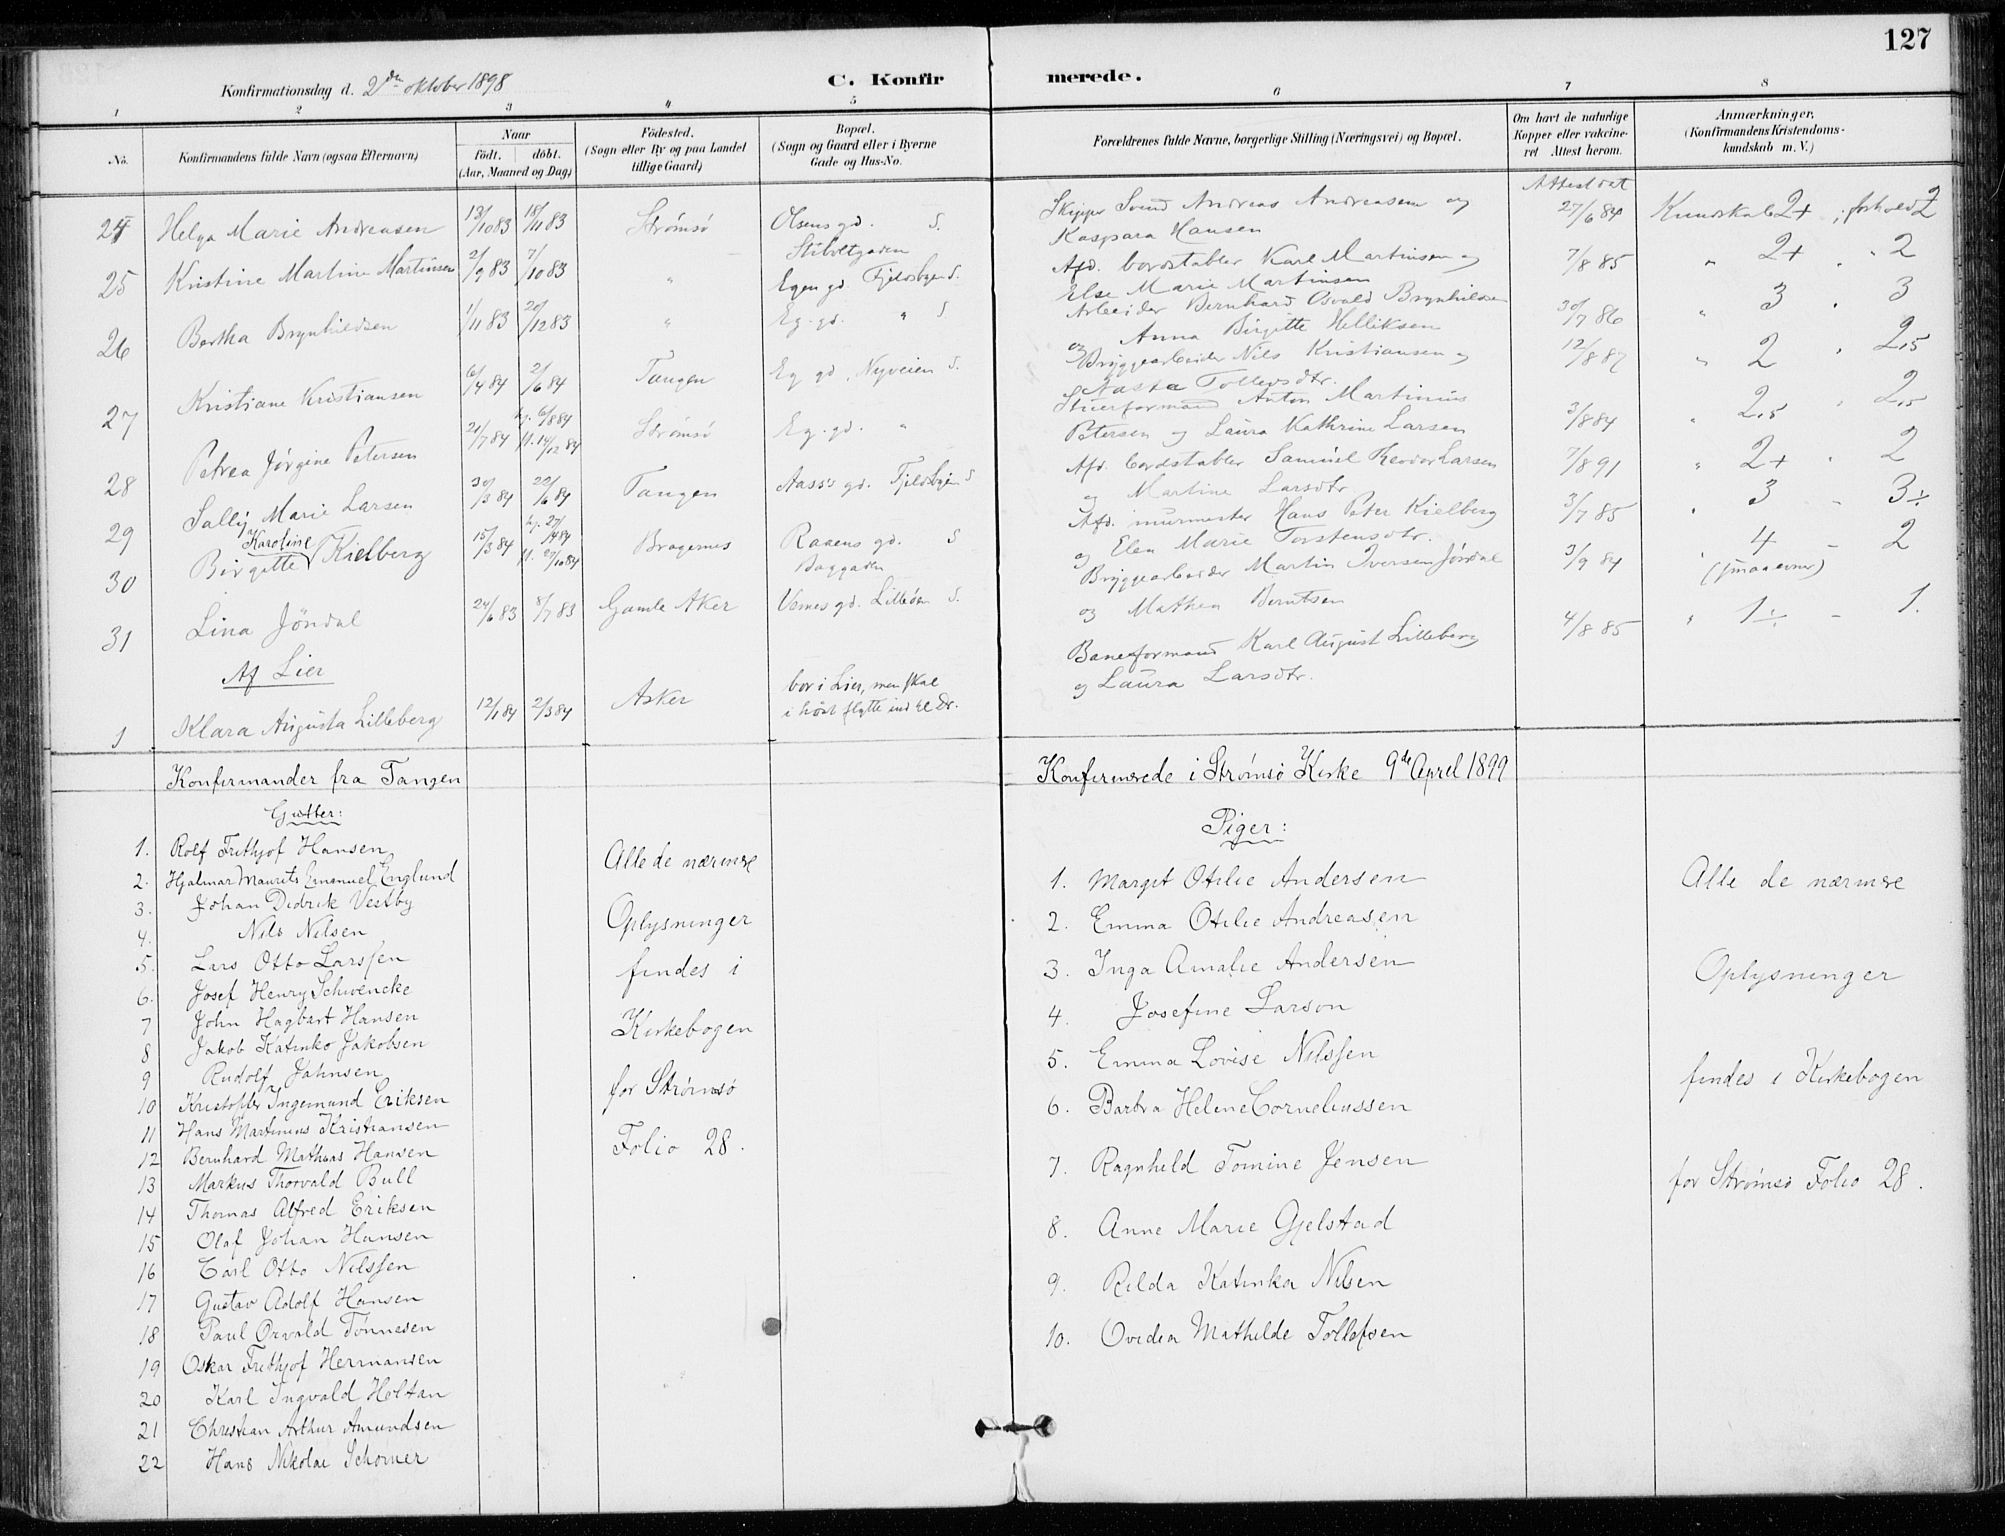 127
Konfirmationsdag d. 2den oktober 1898
C. Konfirmerede.
1 2 3 4 5 6 7 8
No.
Konfirmandens fulde Navn (ogsaa Efternavn)
Naar
födt. döbt.
(Aar, Maaned og Dag)
Födested.
(Sogn eller By og paa Landet
tillige Gaard)
Bopæl.
(Sogn og Gaard eller i Byerne
Gade og Hus-No.
Forældrenes fulde Navne, borgerlige Stilling (Næringsvei) og Bopæl.
Om havt de naturlige
Kopper eller vakcine-
ret Attest herom.
Anmærkninger,
(Konfirmandens Kristendoms-
kundskab m. V.)
24 Helga Marie Andreasen 13/10 83 18/11 83 Strømsø Olsens gd. S.
Stiboltgaden
Skipper Svend Andreas Andreasen og
Kaspara Hansen
Attest dat 27/6 84 Kundskab 2+ ; forhold 2
25 Kristine Martine Martinsen 2/9 83 7/10 83 " Egen gd. Fjeldbyen S.
Afd. bordstabler Karl Martinsen og
Else Marie Martinsen
7/8 85 " 2+ " 2
26 Bertha Brynhildsen 1/11 83 20/12 83 " Eg. gd. " S
Arbeider Bernhard Osvald Brynhildsen
og Anna Birgitte Helliksen
30/7 86 " 3 . 3
27 Kristiane Kristiansen 6/4 84 2/6 84 Tangen Eg. gd. Nyveien S.
Bryggearbeider Nils Kristiansen og
Nasta Tollevsdtr.
12/8 87 " 2 , 2,5
28 Petrea Jørgine Petersen 21/7 84 hj. 6/8 84
k. 14/12 84 Strømsø Eg. gd. "
Stuerformand Anton Martinius
Petersen og Laura Kathrine Larsen
3/8 84 " 2,5 " 2,5
29 Sally Marie Larsen 30/3 84 22/6 84 Tangen Aass's gd. Fjeldbyen S
Afd. bordstabler Samuel Teodor Larsen
og Martine Larsdtr.
7/8 91 " 2+ " 2
30 Birgitte Karoline Kielberg 15/3 84 hj. 27/4 84
k. 27/10 84 Bragernes Raaens gd. S
Baggaden
Afd. murmester Hans Peter Kielberg
og Elen Marie Torstensdtr.
3/7 85 " 3 – 3÷
31 Lina Jöndal 24/6 83 8/7 83 Gamle Aker Vernes gd. Lilleøen S.
Bryggearbeider Martin Iversen Jöndal
og Mathea Berntsen
3/9 84 " 4 – 2
(smaa evner)
Af Lier
1 Klara Augusta Lilleberg 12/1 84 2/3 84 Asker bor i Lier, men skal
i høst flytte ind til Dr.
Baneformand Karl August Lilleberg
og Laura Larsdtr.
4/8 85 " 1÷ – 1.
Konfirmander fra Tangen
Gutter:
1. Rolf Frithjof Hansen
2. Hjalmar Maurits Emanuel Englund
3. Johan Didrik Vestby
4. Nils Nilsen
5. Lars Otto Larssen
6. Josef Henry Schwencke
7 John Hagbart Hansen
8 Jakob Katinko Jakobsen
9 Rudolf Jahnsen
10 Kristoffer Ingemund Eriksen
11 Hans Martinius Kristiansen
12 Bernhard Mathias Hansen
13 Markus Thorvald Bull
14 Thomas Alfred Eriksen
15 Olaf Johan Hansen
16 Carl Otto Nilssen
17 Gustav Adolf Hansen
18 Paul Orvald Tönnesen
19 Oskar Frithjof Hermansen
20 Karl Ingvald Holtan
21 Christian Arthur Amundsen
22 Hans Nikolai Schouer
Alle de nærmere
Oplysninger
findes i
Kirkebogen
for Strømsø
Folio 28.
Konfirmerede i Strømsö Kirke 9de April 1899
Piger:
1. Margit Otilie Andersen
2. Emma Otilie Andreasen
3. Inga Amalie Andersen
4. Josefine Larson
5. Emma Lovise Nilssen
6. Barbra Helene Corneliussen
7. Ragnhild Tomine Jensen
8. Anne Marie Gjelstad
9. Rilda Katinka Nilsen
10. Ovidia Mathilde Tollefsen
Alle de nærmere
Oplysninger
findes i Kirkebogen
for Strømsø Folio 28.